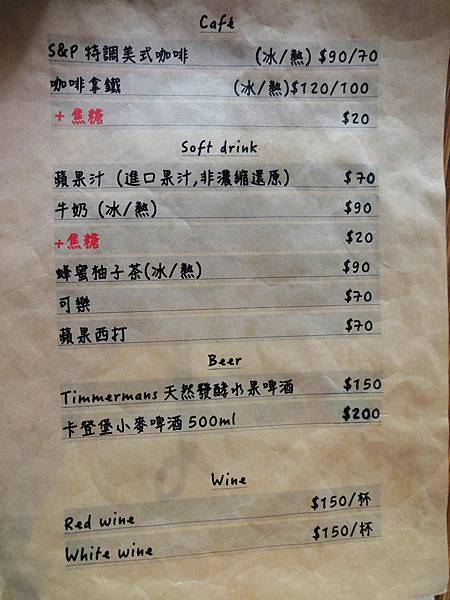 Café
S&P 特調美式咖啡 (冰/熱) $90/70
咖啡拿鐵 (冰/熱)$120/100
+焦糖 $20
Soft drink
蘋果汁 (進口果汁,非濃縮還原) $70
牛奶 (冰/熱) $90
+焦糖 $20
蜂蜜柚子茶(冰/熱) $90
可樂 $70
蘋果西打 $70
Beer
Timmermans 天然發酵水果啤酒 $150
卡登堡小麥啤酒 500ml $200
Wine
Red wine $150/杯
White wine $150/杯